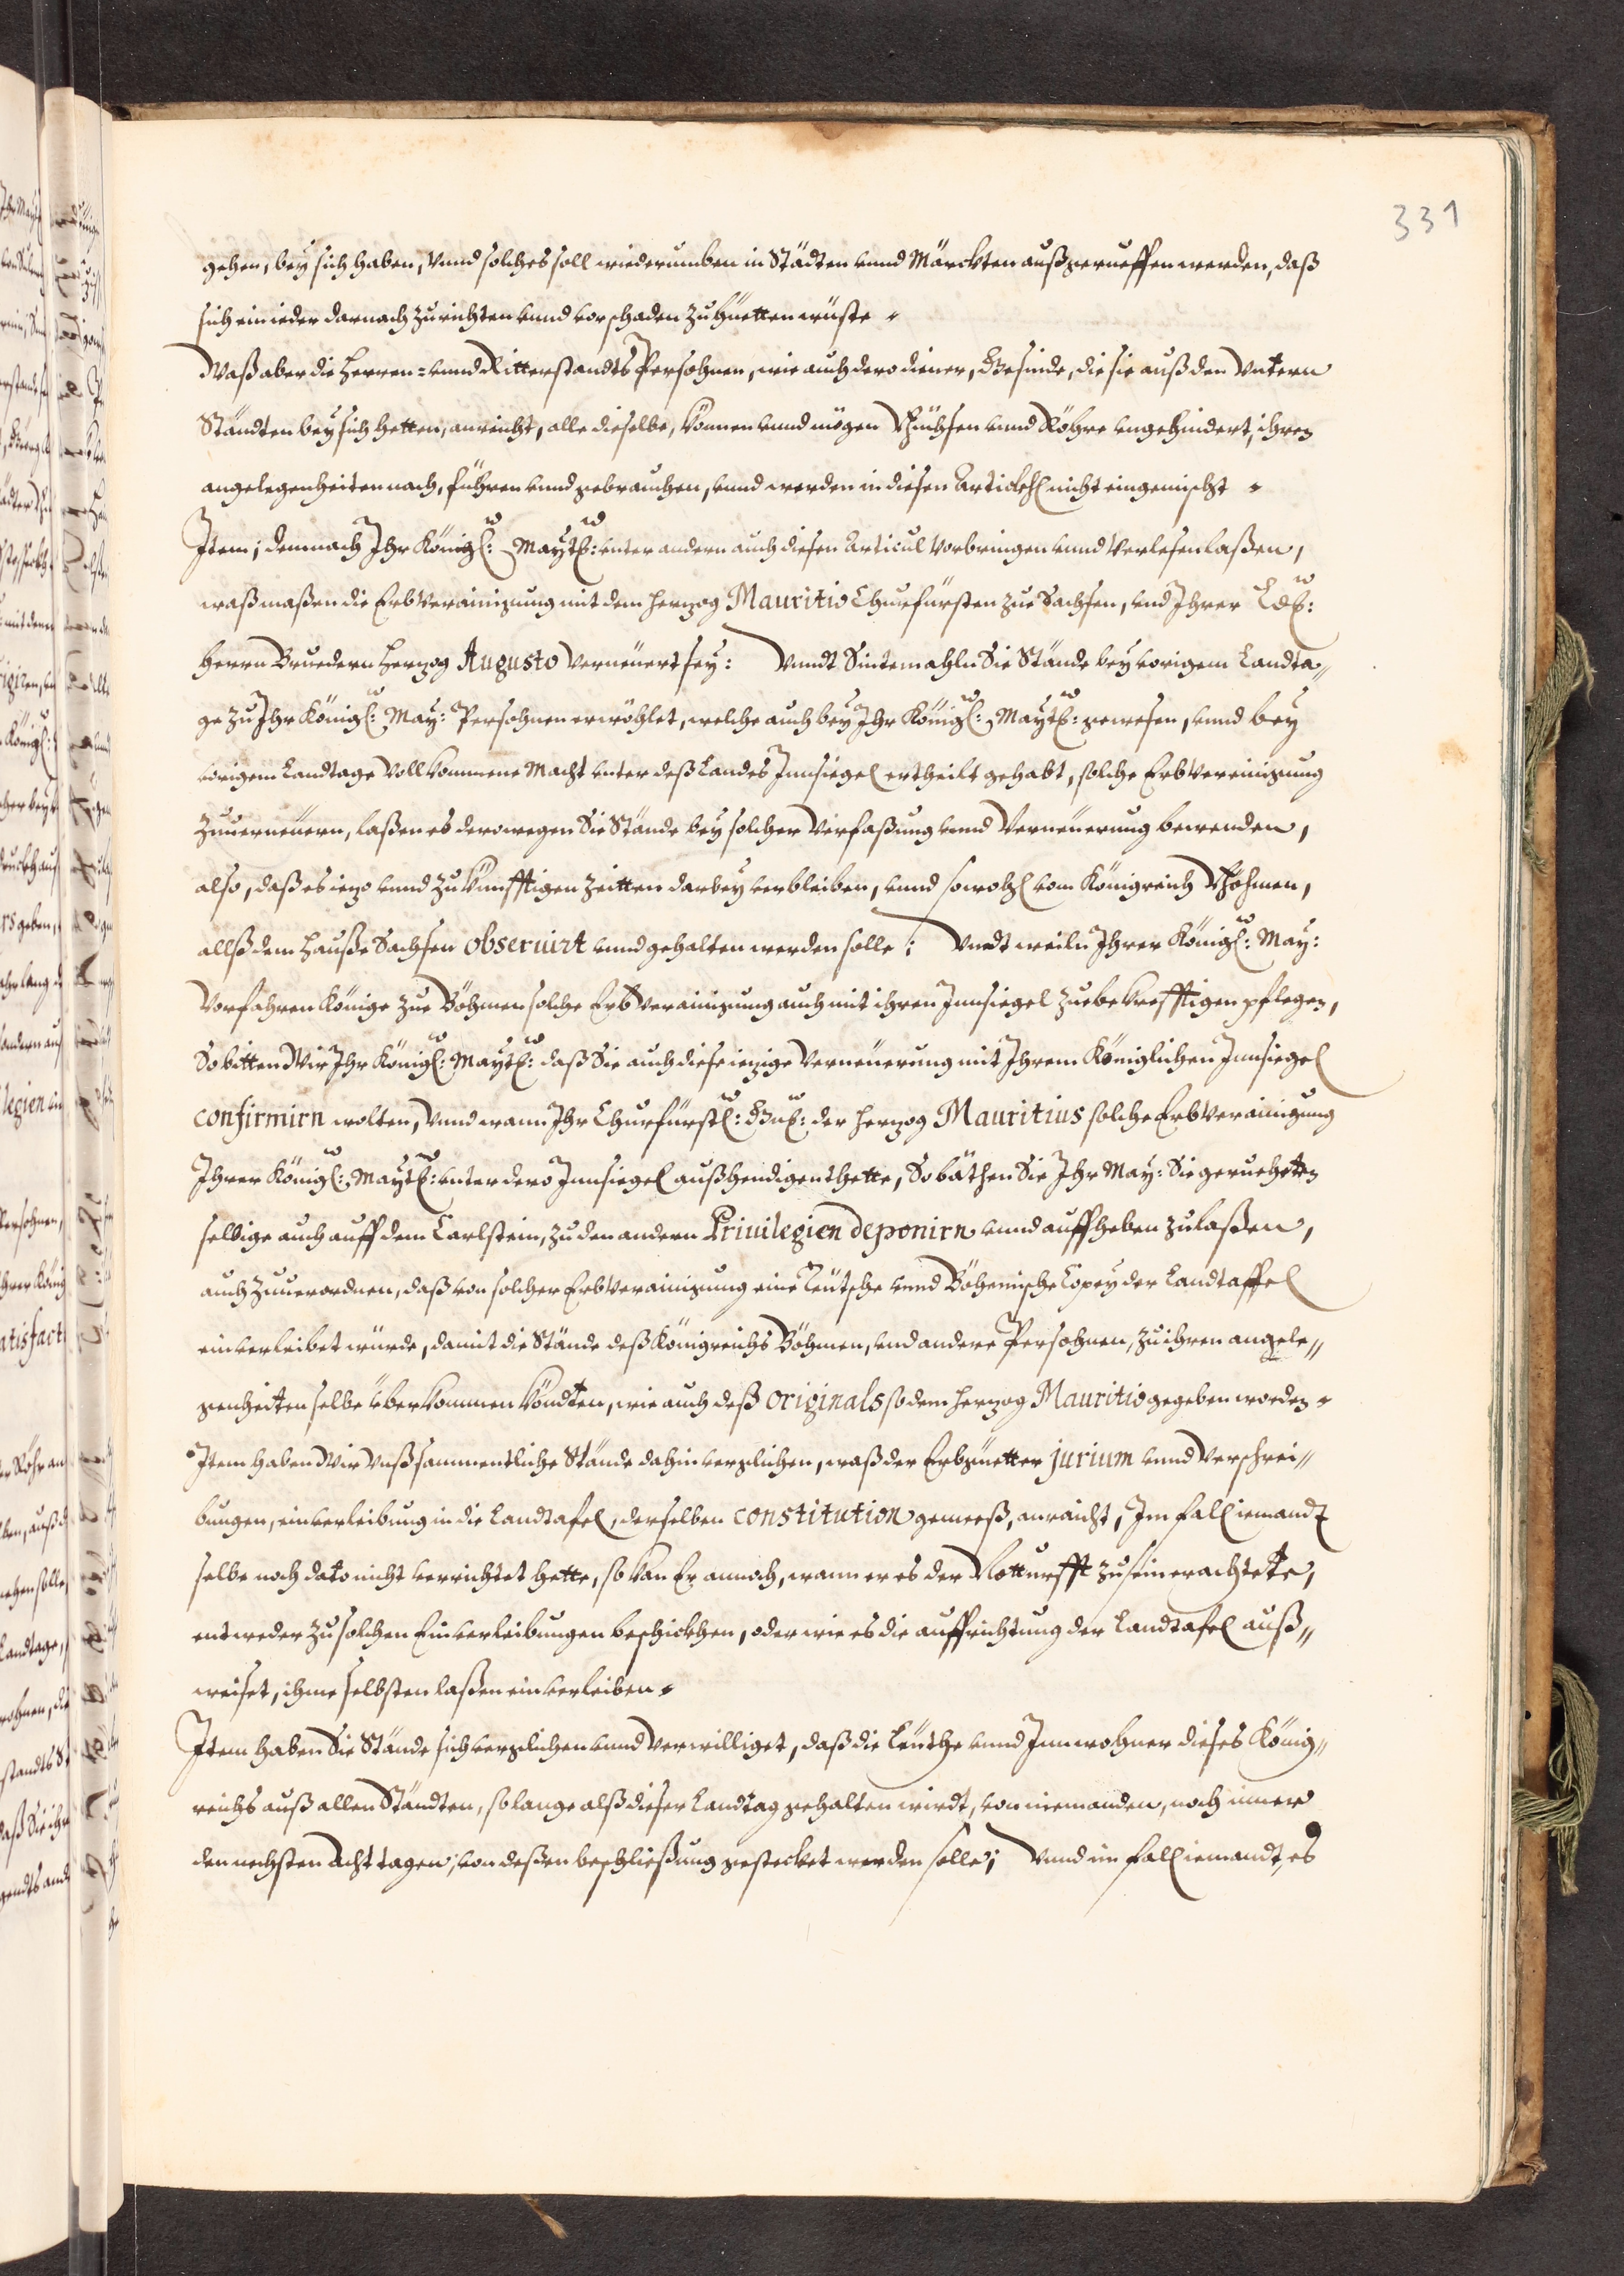 331
gehen, bey sich haben, vnnd solches soll wiederumben in Städten vnnd Märckten außgerueffen werden, daß
sich ein ieder darnach zurichten vnnd vor schaden zuhüetten wüste
Waß aber die Herren= vnnd Ritterstandts Persohnen, wie auch dero diener, Gesinde, die sie auß den Vntern
Ständten bey sich hetten, anreicht, alle dieselbe, können vnnd mögen Püchsen vnnd Röhre vngehindert, ihren
angelegenheiten nach, führen vnnd gebrauchen, vnnd werden in diesen Artickhl nicht eingemischt
Item; demnach Ihr Königl: Maytt: vnter andern auch diesen Articul Vorbringen vnnd Verlesen laßen,
waßmaßen die Erbverainigung mit dem Herzog Mauritio Churfürsten zue Sachsen, vnd Ihrer Ld:
Herrn Bruedern Herzog Augusto Verneüert sey: Vnndt Sintemahln Sie Stände bey vorigem Landta„
ge zu Ihr Königl: May: Persohnen erwöhlet, welche auch bey Ihr Königl: Maytt: gewesen, vnnd bey
vorigem Landtage Vollkommene Macht vnter deß Landes Innsiegel ertheilt gehabt, solche Erbvereinigung
Zuuerneüern, laßen es derowegen Sie Stände bey solcher Verfaßung vnnd Verneüerung bewenden,
also, daß es iezo vnnd zu künfftigen Zeitten darbey verbleiben, vnnd sowohl vom Königreich Böhmen,
allß dem Hauße Sachsen obseruirt vnnd gehalten werden solle; Vnndt weiln Ihrer Königl: May:
Vorfahren Könige zue Böhmen solche Erbverainigung auch mit ihren Innsiegel zuebekrefftigen pflegen,
So bitten Wir Ihr Königl: Maytt: daß Sie auch diese iezige Verneüerung mit Ihrem Königlichen Innsiegel
confirmirn wolten, Vnnd wann Ihr Churfürstl: Gn: der Herzog Mauritius solche Erbverainigung
Ihrer Königl: Maytt: vnter dero Innsiegel außhendigen thette, So bäthen Sie Ihr May: Sie geruehetten
selbige auch auff dem Carlstein, zu den andern Priuilegien deponirn vnnd auffheben zulaßen,
auch Zuuerordnen, daß von solcher Erbverainigung eine Teütsche vnnd Böhemische Copey der Landtaffel
einverleibet würde, damit die Stände deß Königreichs Böhmen, vnd andere Persohnen, zu ihren angele„
genheiten selbe überkommen köndten, wie auch deß originals so dem Herzog Mauritio gegeben worden
Item haben Wir Vnß sammentliche Stände dahin verglichen, waß der Erbgüetter jurium vnnd Verschrei„
bungen, einverleibung in die Landtafel, derselben constitution gemeeß, anraicht, Im fall iemandt
selbe noch dato nicht verrichtet hette, so kan Er annoch, wann er es der Notturfft zu sein erachtete,
entweder zu solchen Einverleibungen beschickhen, oder wie es die auffrichtung der Landtafel auß„
weiset, ihme selbsten laßen einverleiben
Item haben Sie Stände sich verglichen vnnd Verwilliget, daß die Leüthe vnnd Innwohner dieses König„
reichs auß allen Ständten, so lange alß dieser Landtag gehalten wirdt, von niemanden, noch inner
den nechsten Acht tagen, von deßen beschließung gestecket werden solle; Vnnd im fall iemandt, es